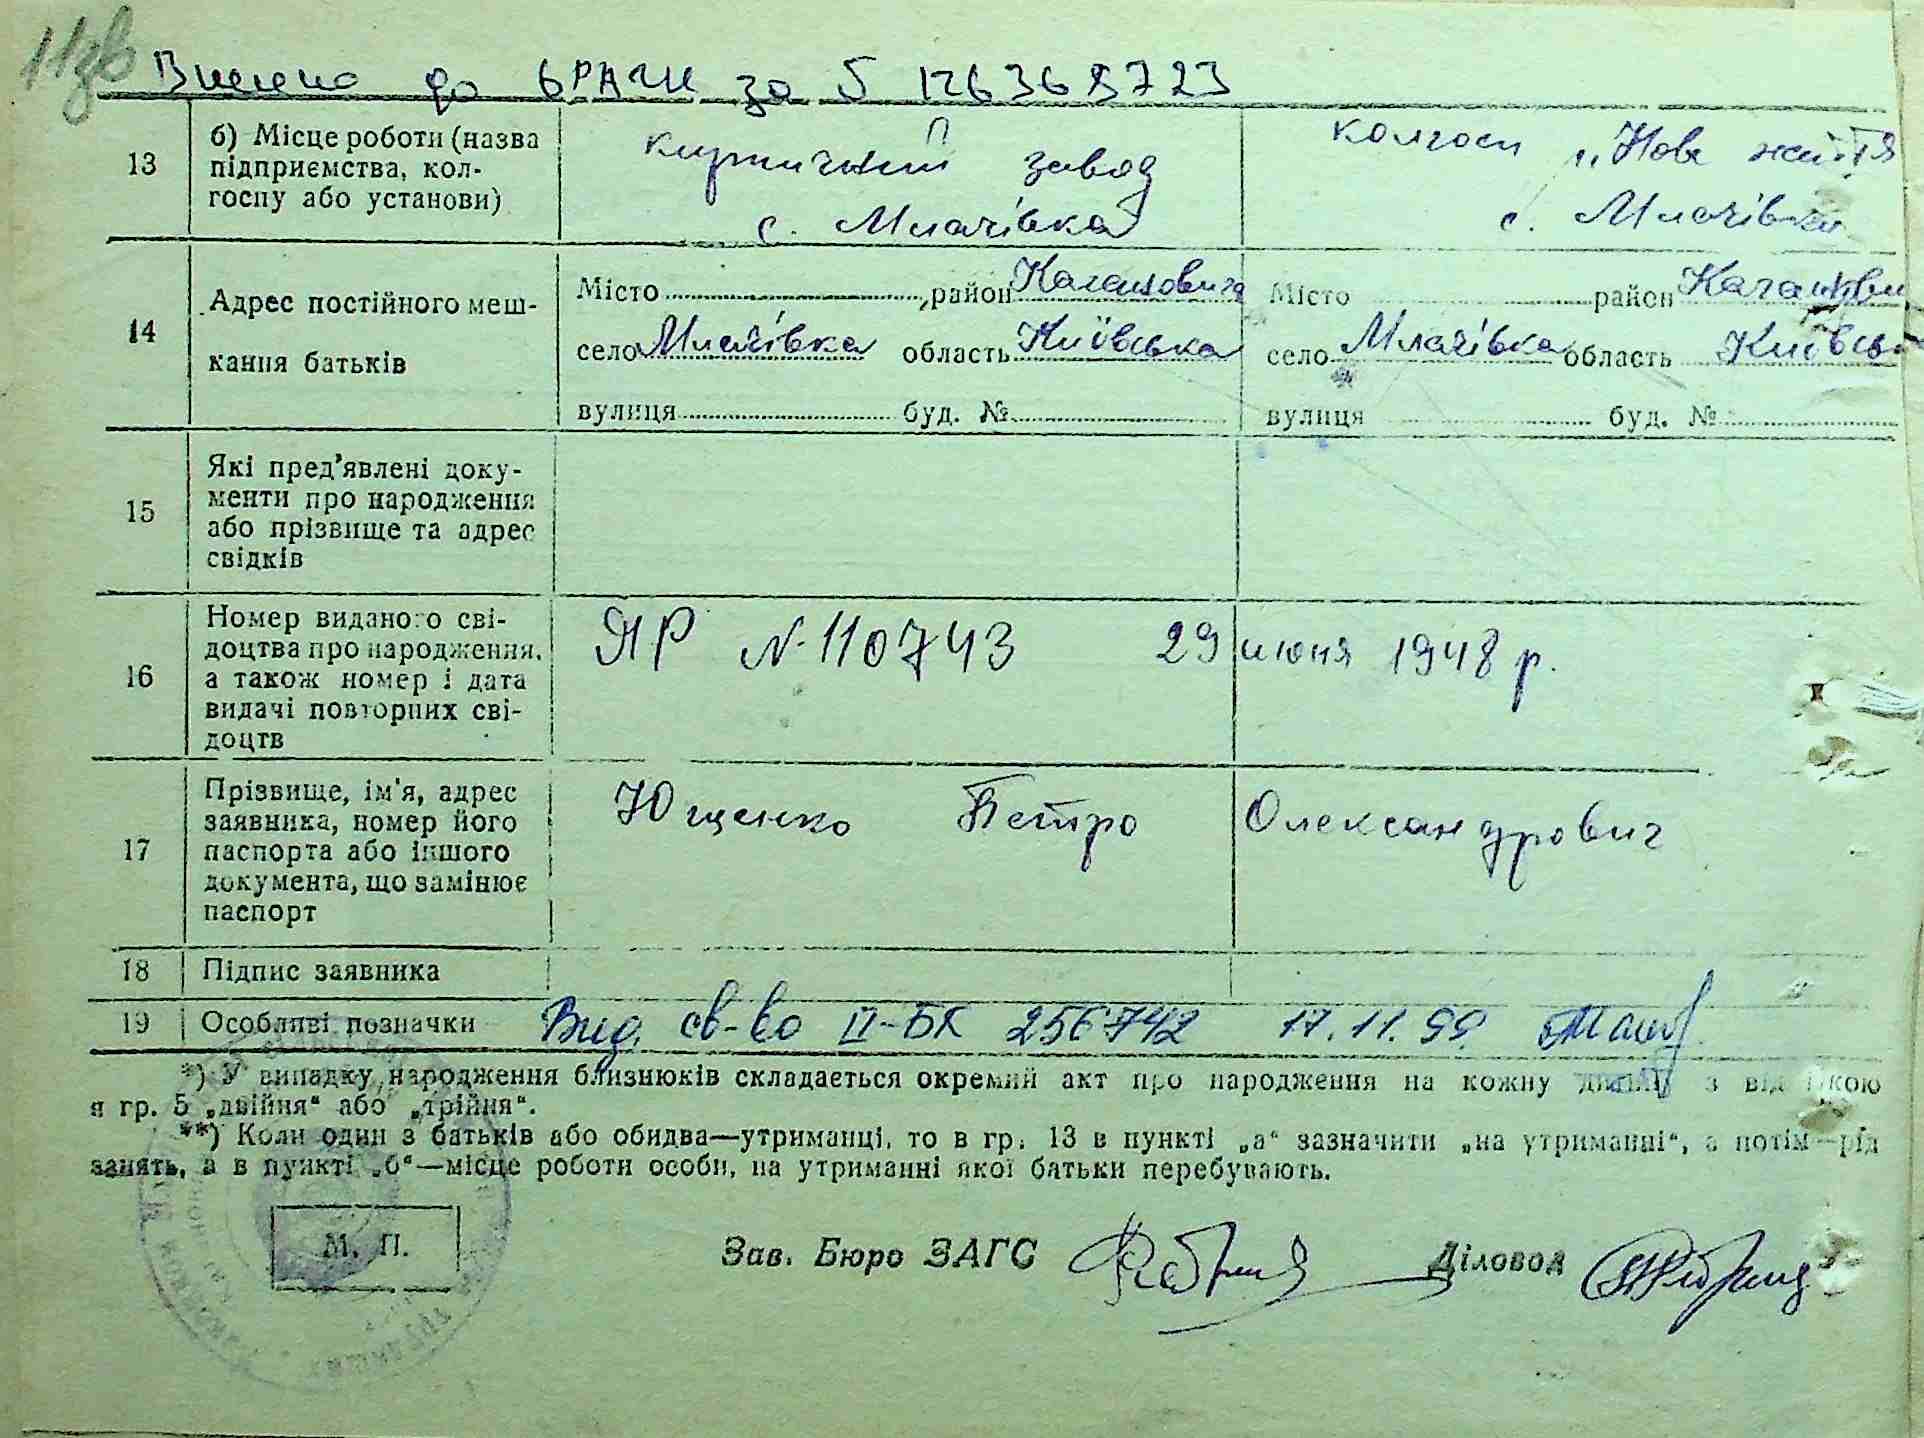 11зв
Внесено до ЄРАЦС за
13 б) Місце роботи (назва підприємства, кол-
госпу або установи)
завод колгосп „Нове життя
с. Млачівка с. Млачівка
14 Адрес постійного меш-
кання батьків
Місто район Кагановича Місто район
село Млачівка область Київська село Млачівка область Київсь
вулиця буд. № вулиця буд. №
15 Які пред'явлені доку-
менти про народження
або прізвище та адрес
свідків
16 Номер виданого сві-
доцтва про народження,
а також номер і дата
видачі повторних сві-
доцтв
ЯР № 110743 29 июня 1948 р.
17 Прізвище, ім'я, адрес
заявника, номер його
паспорта або іншого
документа, що замінює
паспорт
Ющенко Петро Олександрович
18 Підпис заявника
19 Особливі позначки Вид. св-во II-БК 256742 17.11.99
*) У випадку народження близнюків складається окремий акт про народження на кожну з
я гр. 5 „двійня“ або „трійня“.
**) Коли один з батьків або обидва—утриманці, то в гр. 13 в пункті „а“ зазначити „на утриманні“, а потім—рід
занять, а в пункті „б“—місце роботи особи, на утриманні якої батьки перебувають.
М. П.
Зав. Бюро ЗАГС Діловод